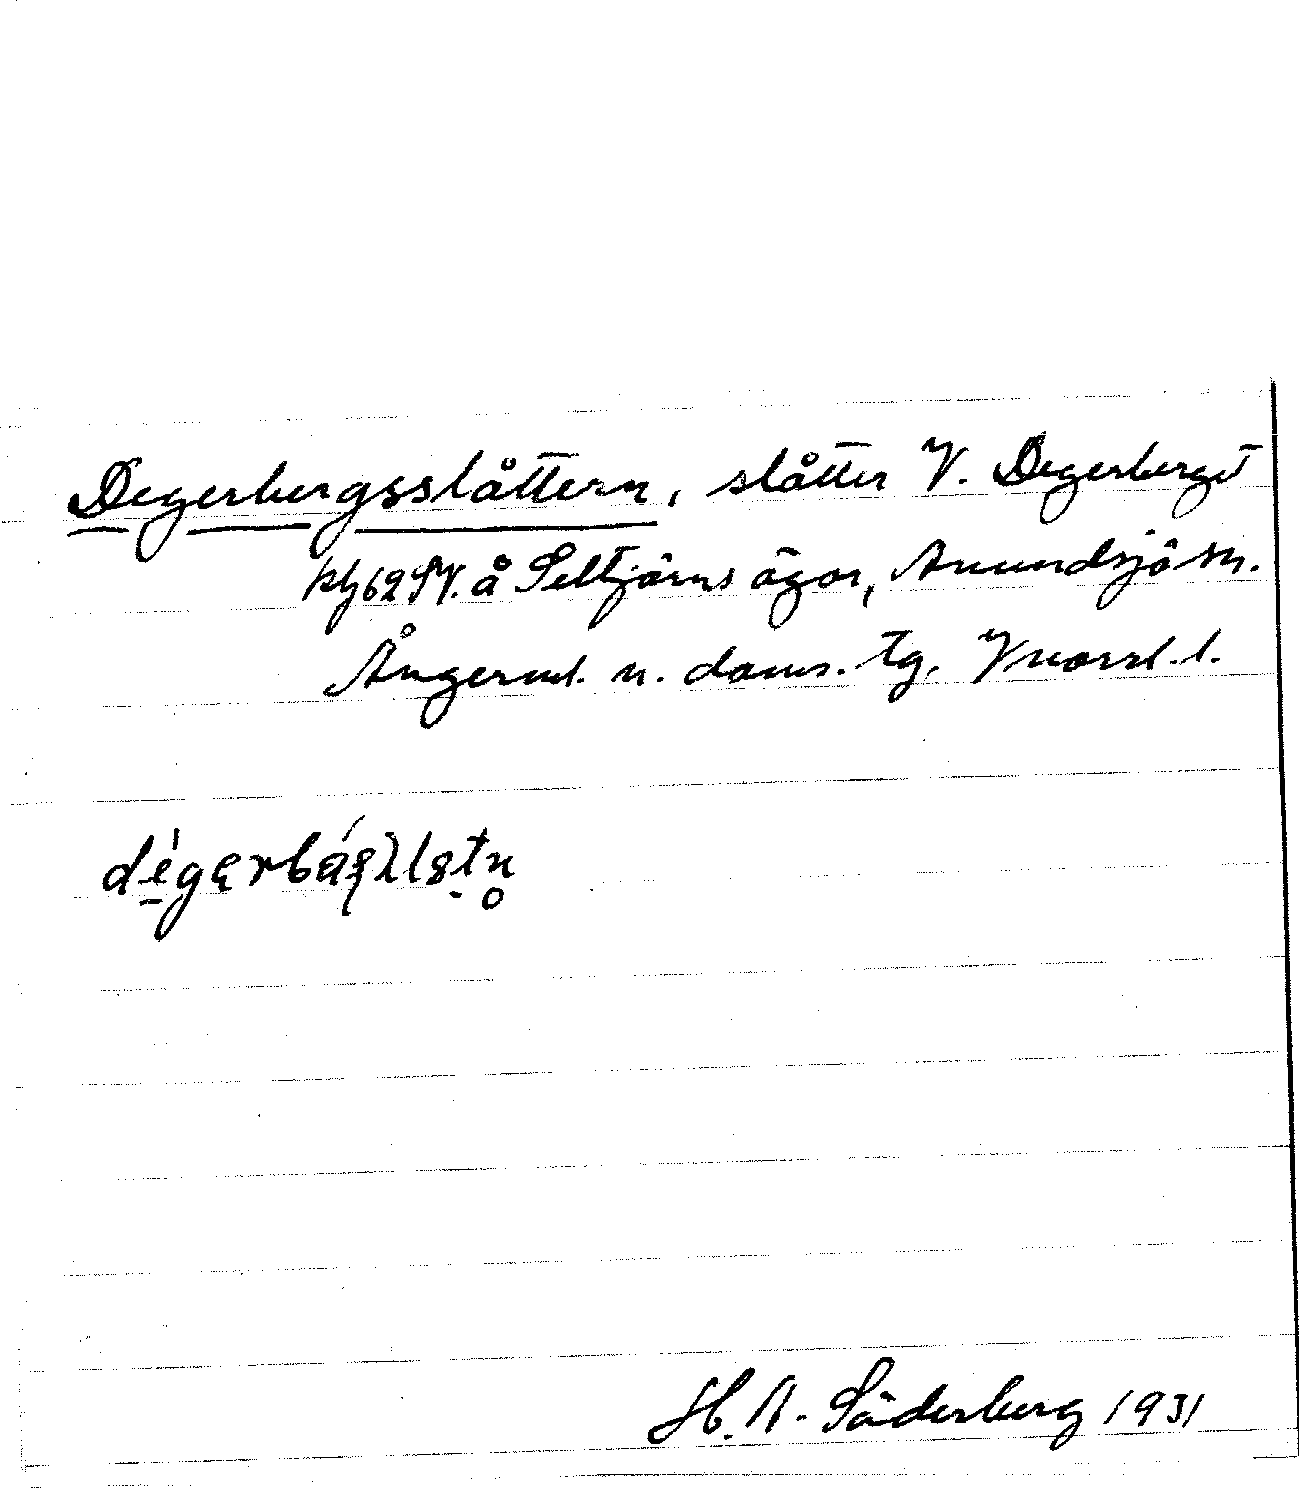 Degerbergsslåttern, slåtter V. Degerberget
å Seltjärns ägor, Anundsjö sn.
Ångerml. n. doms. tg. Vnorrl. l.
H. A. Söderberg 1931